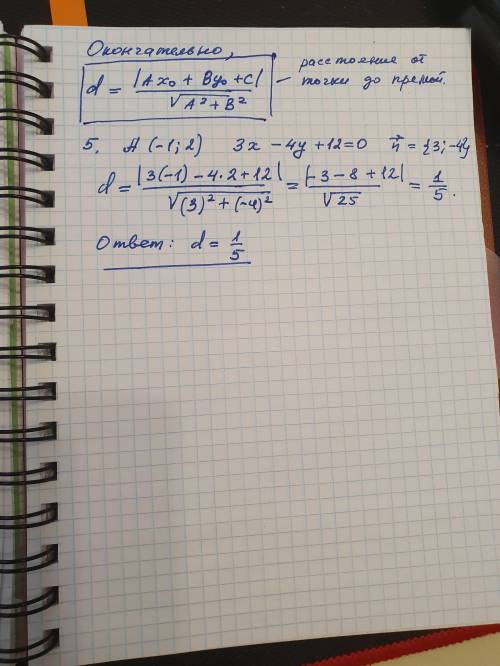 Окончательно,
d = |Ax₀ + By₀ + C| / √(A² + B²) — расстояние от точки до прямой.
5. A (-1; 2) 3x - 4y + 12 = 0 n⃗ = {3; -4}
d = |3(-1) - 4·2 + 12| / √((3)² + (-4)²) = |-3 - 8 + 12| / √25 = 1/5.
Ответ: d = 1/5